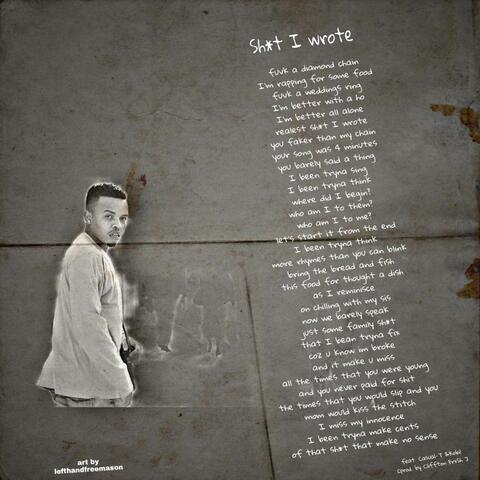 Sh*t I wrote
fuvk a diamond chain
I'm rapping for some food
fuvk a weddings ring
I'm better with a ho
I'm better all alone
realest sh*t I wrote
you faker than my chain
your song was 4 minutes
you barely said a thing
I been tryna sing
I been tryna think
where did I begin?
who am I to them?
who am I to me?
let's start it from the end
I been tryna think
more rhymes than you can blink
bring the bread and fish
this food for thought a dish
as I reminisce
on chilling with my sis
now we barely speak
just some family sh*t
that I bean tryna fix
coz u know im broke
and it make u miss
all the times that you were young
and you never paid for shit
the times that you would slip and you
mom would kiss the stitch
I miss my innocence
I been tryna make cents
of that sh*t that make no sense
feat. Casual T
(prod by Cliffton Fresh)
art by
lefthandfreemason